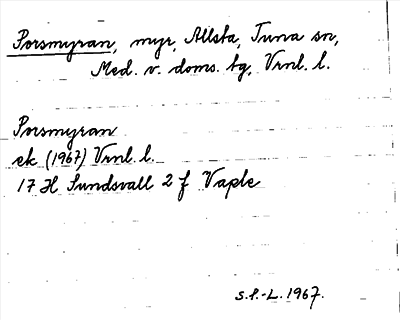 Porsmyran, myr, Allsta, Tuna sn,
Med. v. doms. tg, Vrnl. l.
Porsmyran
ek (1967) Vrnl. l.
17 H Sundsvall 2 f Vaple
S.P.-L. 1967.